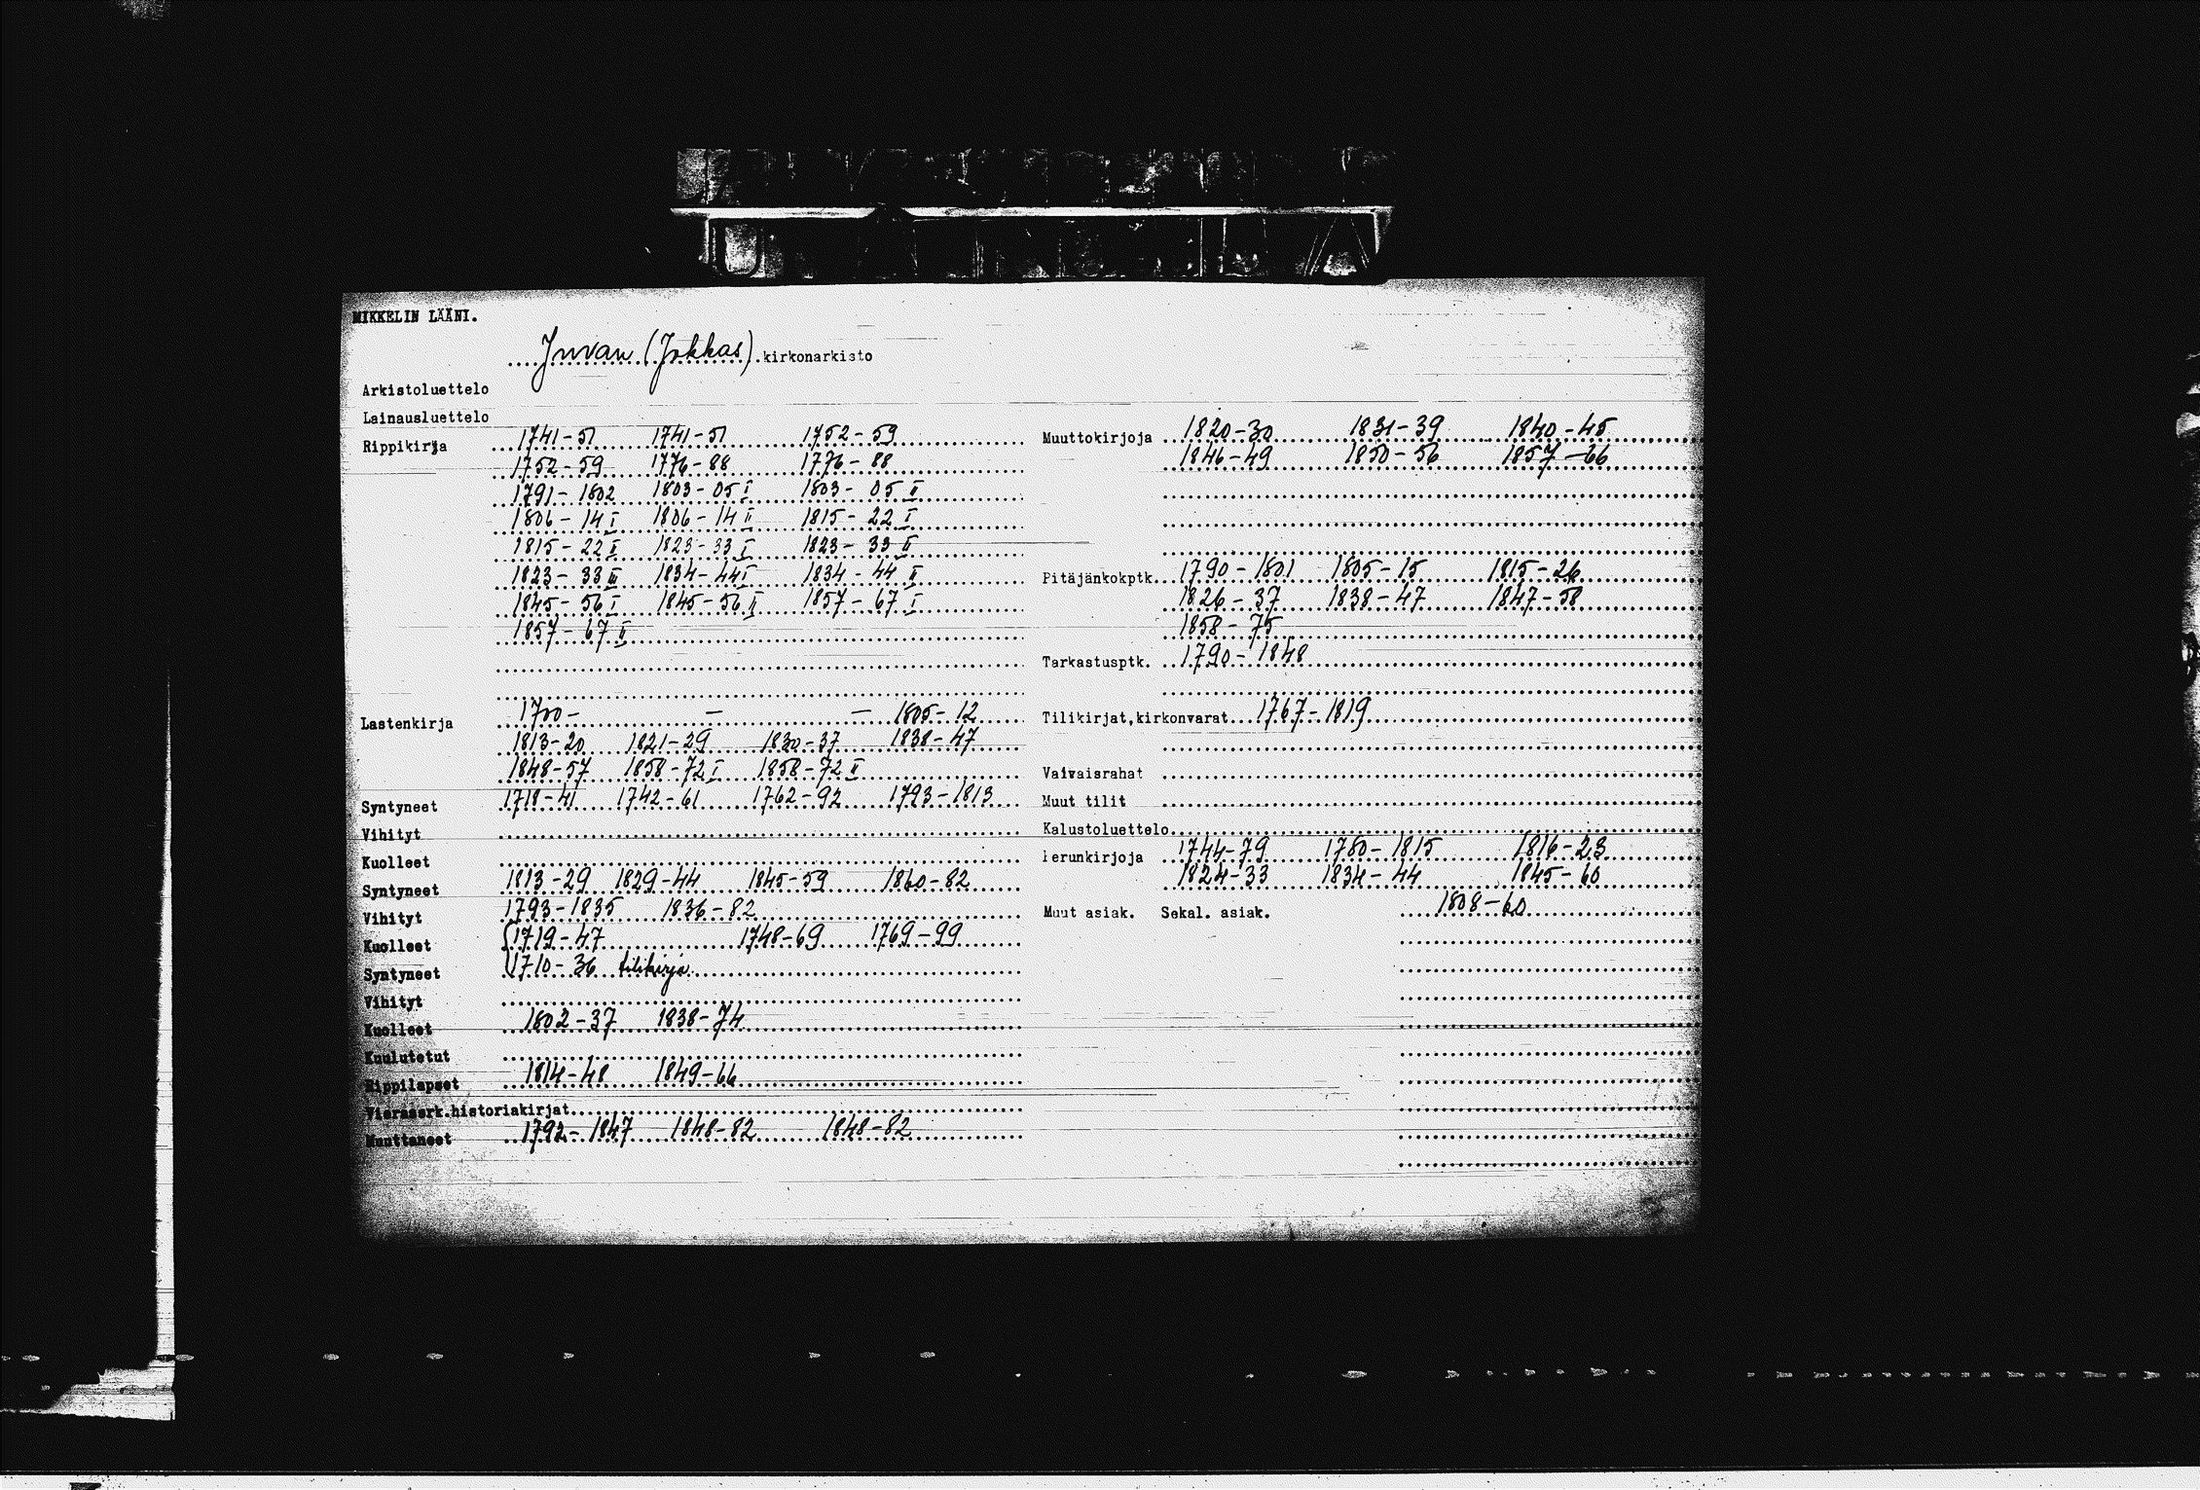 MIKKELIN LÄÄNI.
Juvan (Jokkas) kirkonarkisto
Arkistoluettelo
Lainausluettelo
Rippikirja 1741-51 1741-51 1752-59
1752-59 1776-88 1776-88
1791-1802 1803-05 I 1803-05 II
1806-14 I 1806-14 II 1815-22 I
1815-22 II 1823-33 I 1823-33 II
1823-33 III 1834-44 I 1834-44 II
1845-56 I 1845-56 II 1857-67 I
1857-67 II
Lastenkirja 1700- - - 1805-12
1813-20 1821-29 1830-37 1838-47
1848-57 1858-72 I 1858-72 II
Syntyneet 1718-41 1742-61 1762-92 1793-1813
Vihityt
Kuolleet
Syntyneet 1813-29 1829-44 1845-59 1860-82
Vihityt 1793-1835 1836-82
Kuolleet 1719-47 1748-69 1769-99
Syntyneet 1710-36 tilikirja
Vihityt
Kuolleet 1802-37 1838-74
Kuulutetut
Rippilapset 1814-48 1849-66
Vierasserk.historiakirjat
Muuttaneet 1792-1847 1848-82 1848-82
Muuttokirjoja 1820-30 1831-39 1840-45
1846-49 1850-56 1857-66
Pitäjänkokptk. 1790-1801 1805-15 1815-26
1826-37 1838-47 1847-58
1858-75
Tarkastusptk. 1790-1848
Tilikirjat,kirkonvarat 1767-1819
Vaivaisrahat
Muut tilit
Kalustoluettelo
Perunkirjoja 1744-79 1780-1815 1816-23
1824-33 1834-44 1845-60
Muut asiak. Sekal. asiak. 1808-60